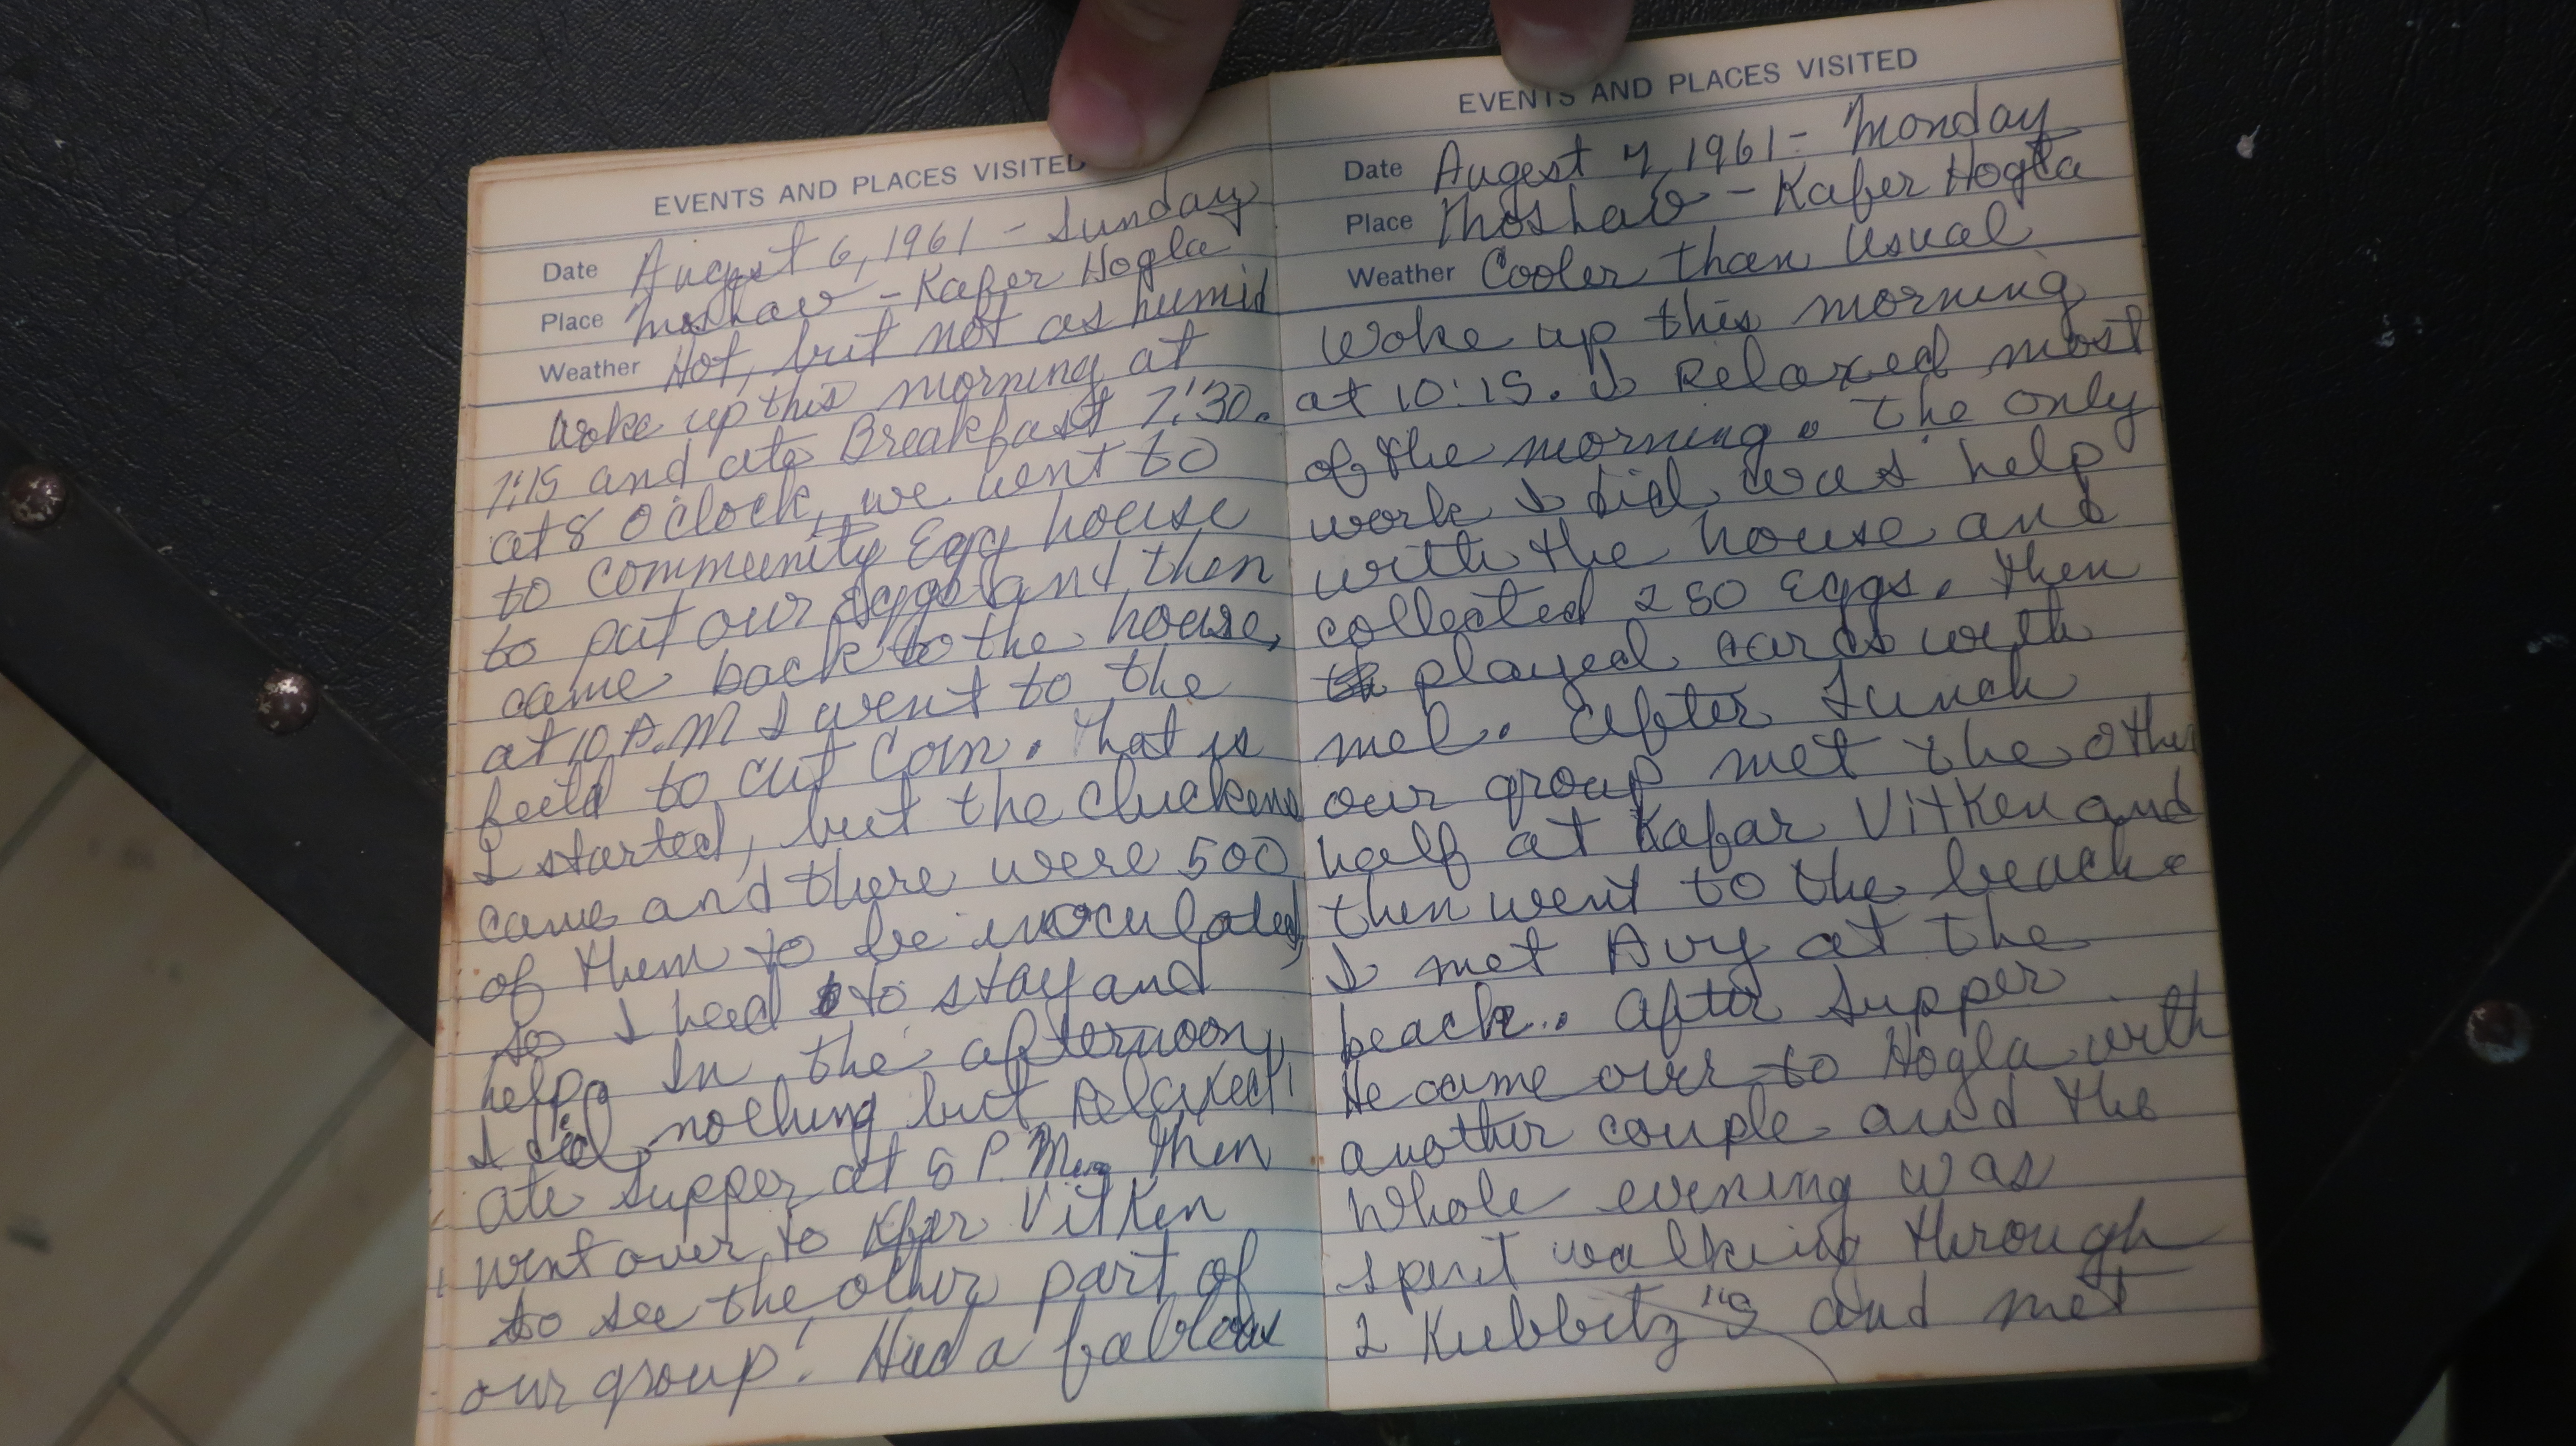 EVENTS AND PLACES VISITED
Date August 6, 1961 - Sunday
Place Moshav - Kafer Hogla
Weather Hot, but not as humid
Woke up this morning at
7:15 and ate Breakfast 7:30.
at 8 O'clock, we went to
to community Egg house
to put our Eggs and then
came back to the house,
at 10 A.M I went to the
feild to cut Corn. That is
I started, but the chickens
came and there were 500
of them to be inoculated,
so I had to stay and
help. In the afternoon,
I did nothing but Relaxed!
Ate supper at 6 P.M. Then
went over to Kfer Vitken
to see the other part of
our group! Had a fablous
EVENTS AND PLACES VISITED
Date August 7, 1961 - Monday
Place Moshav - Kafer Hogla
Weather Cooler than Usual
Woke up this morning
at 10:15. I Relaxed most
of the morning. The only
work I did was help
with the house and
collected 280 Eggs. Then
played cards with
mel. After Lunch
our group met the other
half at Kafar Vitken and
then went to the beach.
I met Avy at the
beach.. After Supper
He came over to Hogla with
another couple and the
Whole evening was
spent walking through
2 Kubbitz's and met